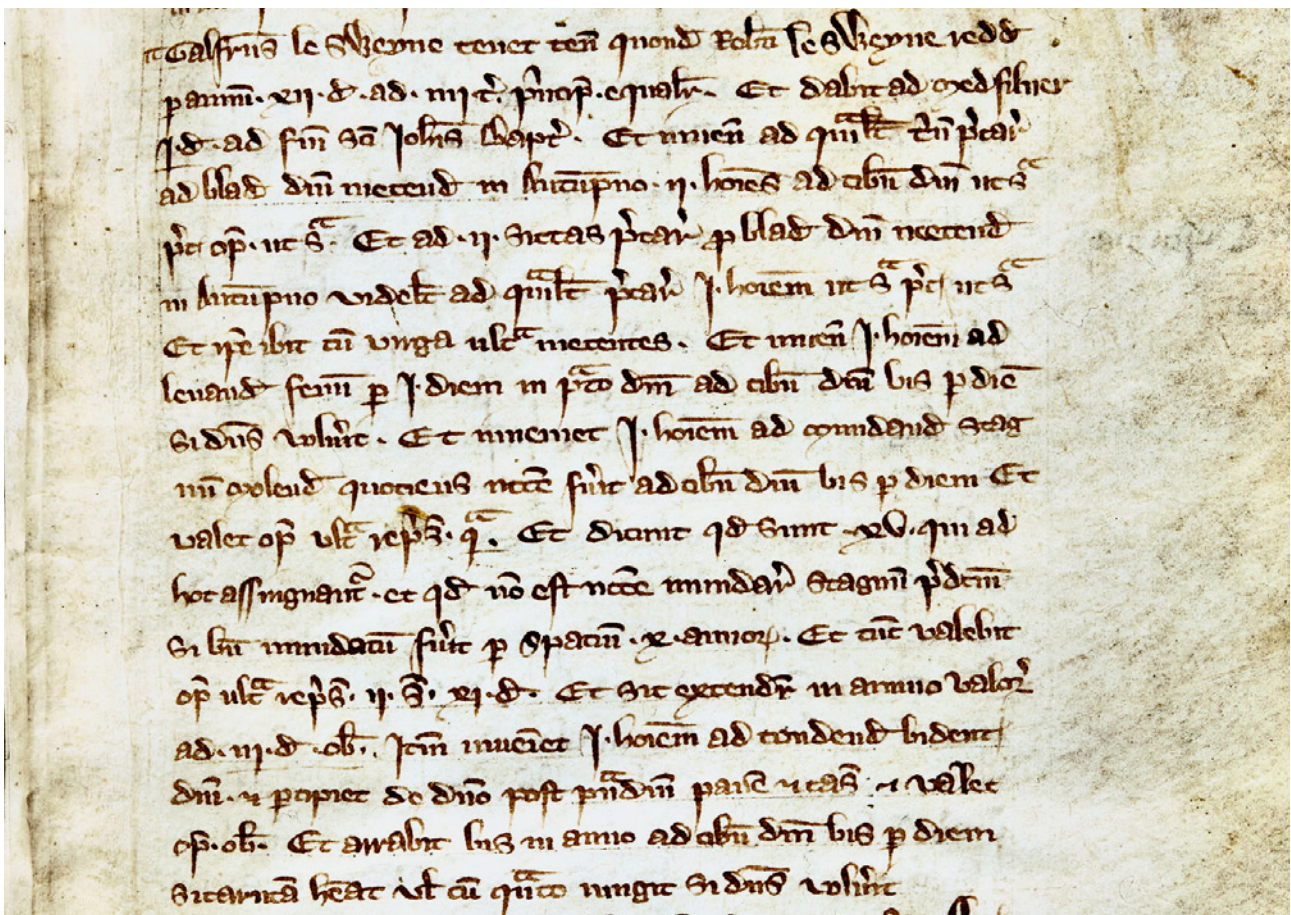 it Galfrus le Sweyne tenet ten quond Robti le Sweyne redd
p annu. xii. d. ad. iiii t. princip. equalr. Et dabit ad medsilver
j. d. ad fm sci Johis Bapte. Et inven ad quali͞bt trm p̃car
ad blad dni metend in Autupno. ii. hoies ad cibu dni ut sª
p̃c op. ut sª. Et ad. ii. siccas p̃car p blad dni metend
in Autupno videlt ad qualibt p̃car j. hoiem ut sª p̃c ut sª
Et ipe ibit cu virga ultª metentes. Et inven j. hoiem ad
levand fenu p j. diem in pªto dni ad cibu dni bis p die
si dns volu͛it. Et inveniet j. hoiem ad mundand stag
nu molend quociens necce fu͛it ad cibu dni bis p diem Et
valet op ultª rep̃s. qª. Et dicunt qd sunt. xv. qui ad
hoc assingnantr. et qd no est necce mundar stagnu p̃dcm
si bn mundatu fu͛it p spaciu. x. annoꝝ. Et tuc valebit
op ultª rep̃s. ii. s. xi. d. Et sic extendr in annuo valor
ad. iii. d. ob. Itm inveiet j. hoiem ad tondend bident
dni. ⁊ pcipiet de dno post pndm pane ⁊ cas ⁊ valet
op. ob. Et arrabit bis in anno ad cibu dni bis p diem
si caruca heat vl cu quªto iungit si dns volu͛it